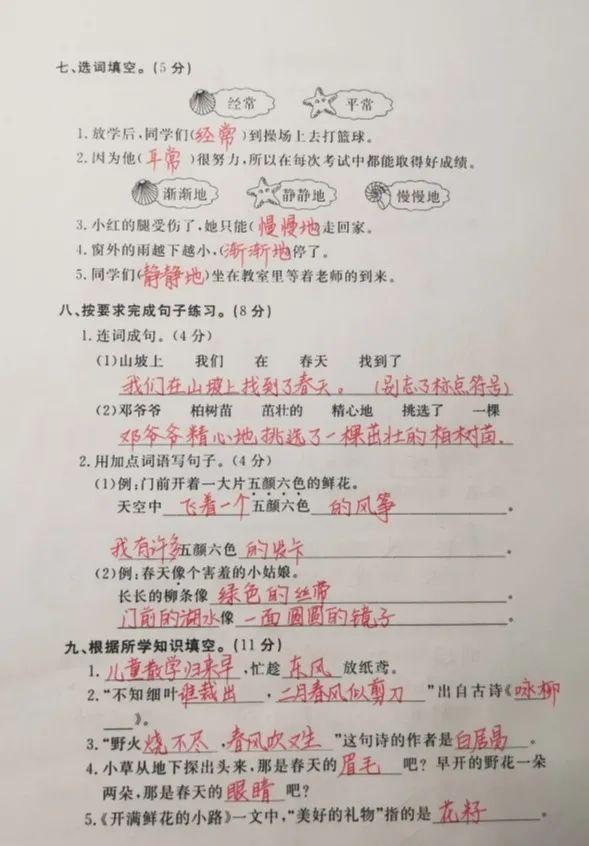 七、选词填空。(5分)
经常 平常
1.放学后,同学们(经常)到操场上去打篮球。
2.因为他(平常)很努力,所以在每次考试中都能取得好成绩。
渐渐地 静静地 慢慢地
3.小红的腿受伤了,她只能(慢慢地走回家。
4.窗外的雨越下越小,(渐渐地停了。
5.同学们(静静地)坐在教室里等着老师的到来。
八、按要求完成句子练习。(8分)
1.连词成句。(4分)
(1)山坡上 我们 在 春天 找到了
我们在山坡上找到了春天。(别忘了标点符号)
(2)邓爷爷 柏树苗 茁壮的 精心地 挑选了 一棵
邓爷爷精心地挑选了一棵茁壮的柏树苗.
2.用加点词语写句子。(4分)
(1)例:门前开着一大片五颜六色的鲜花。
天空中 飞着一个 五颜六色 的风筝 。
我有许多五颜六色 的发卡 。
(2)例:春天像个害羞的小姑娘。
长长的柳条像 绿色的丝带 。
门前的湖水像 一面圆圆的镜子 。
九、根据所学知识填空。(11分)
1.儿童散学归来早,忙趁 东风 放纸鸢。
2.“不知细叶谁裁出 ,二月春风似剪刀 ”出自古诗《咏柳
》。
3.“野火烧不尽 ,春风吹又生 ”这句诗的作者是白居易 。
4.小草从地下探出头来,那是春天的眉毛 吧? 早开的野花一朵
两朵,那是春天的眼睛 吧?
5.《开满鲜花的小路》一文中,“美好的礼物”指的是 花籽 。